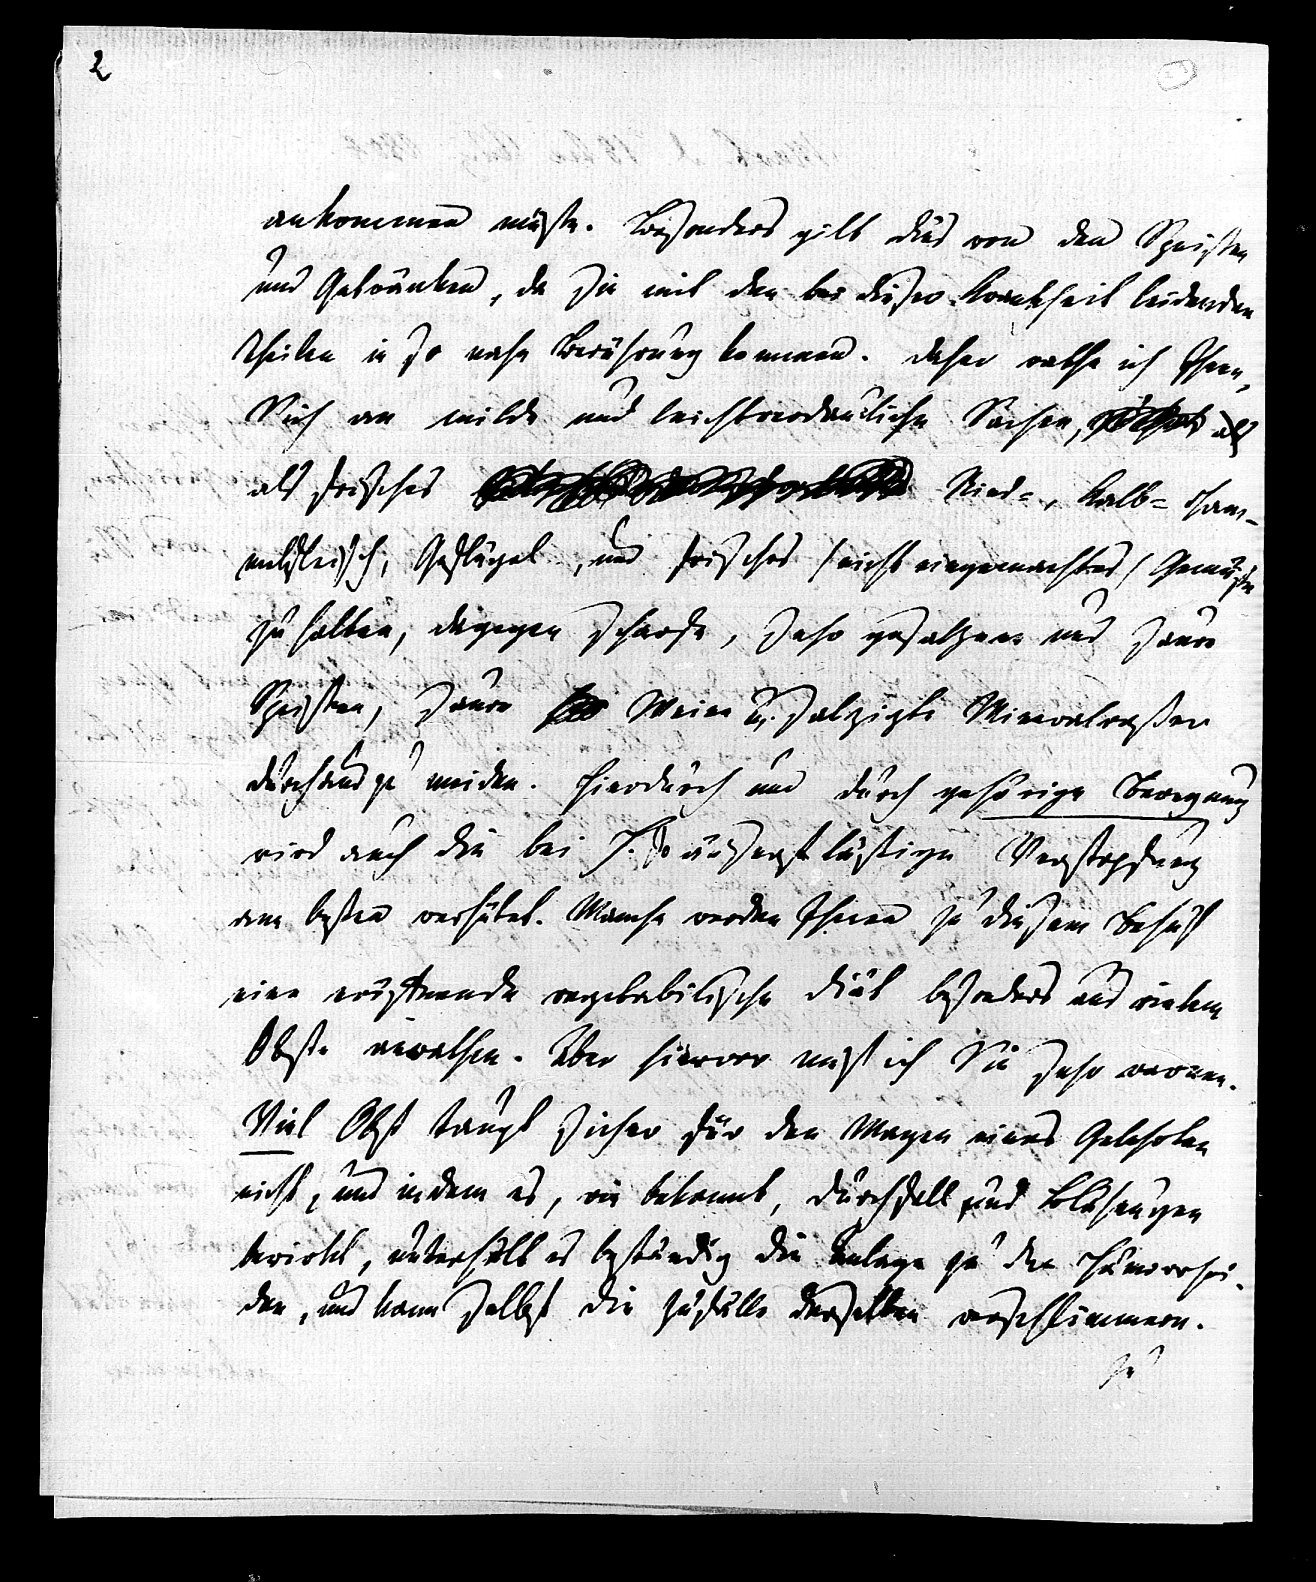 2
ankommen müste. Besonders gilt dies von den Speisen
und Getränken, da Sie mit den bei dieser Krankheit leidenden
Theilen in so nahe Berührung kommen. Daher rathe ich Ihnen,
Sich an milde und leichtverdauliche Sachen, als
als frisches Rind-, Kalb- Ham-
melfleisch, Geflügel, und frisches /nicht eingemachtes/ Gemüse
zu halten, dagegen scharfe, sehr gesalzene und saure
Speisen, saure Weine u. salzigte Mineralwaßer
durchaus zu meiden. Hierdurch und durch gehörige Bewegung
wird auch die bei H. so äuserst lästige Verstopfung
am besten verhütet. Manche werden Ihnen zu diesem Behuf
eine eröfnende vegetabilische Diät besonders aus vielem
Obste anrathen. Aber hiervor muß ich Sie sehr warnen.
Viel Obst taugt sicher für den Magen eines Gelehrten
nicht, und indem es, wie bekannt, Durchfall und Blähungen
bewirkt, unterhält es beständig die Anlage zu den Hämorrhoi-
den, und kann selbst die Zufälle derselben verschlimmern.
Zu